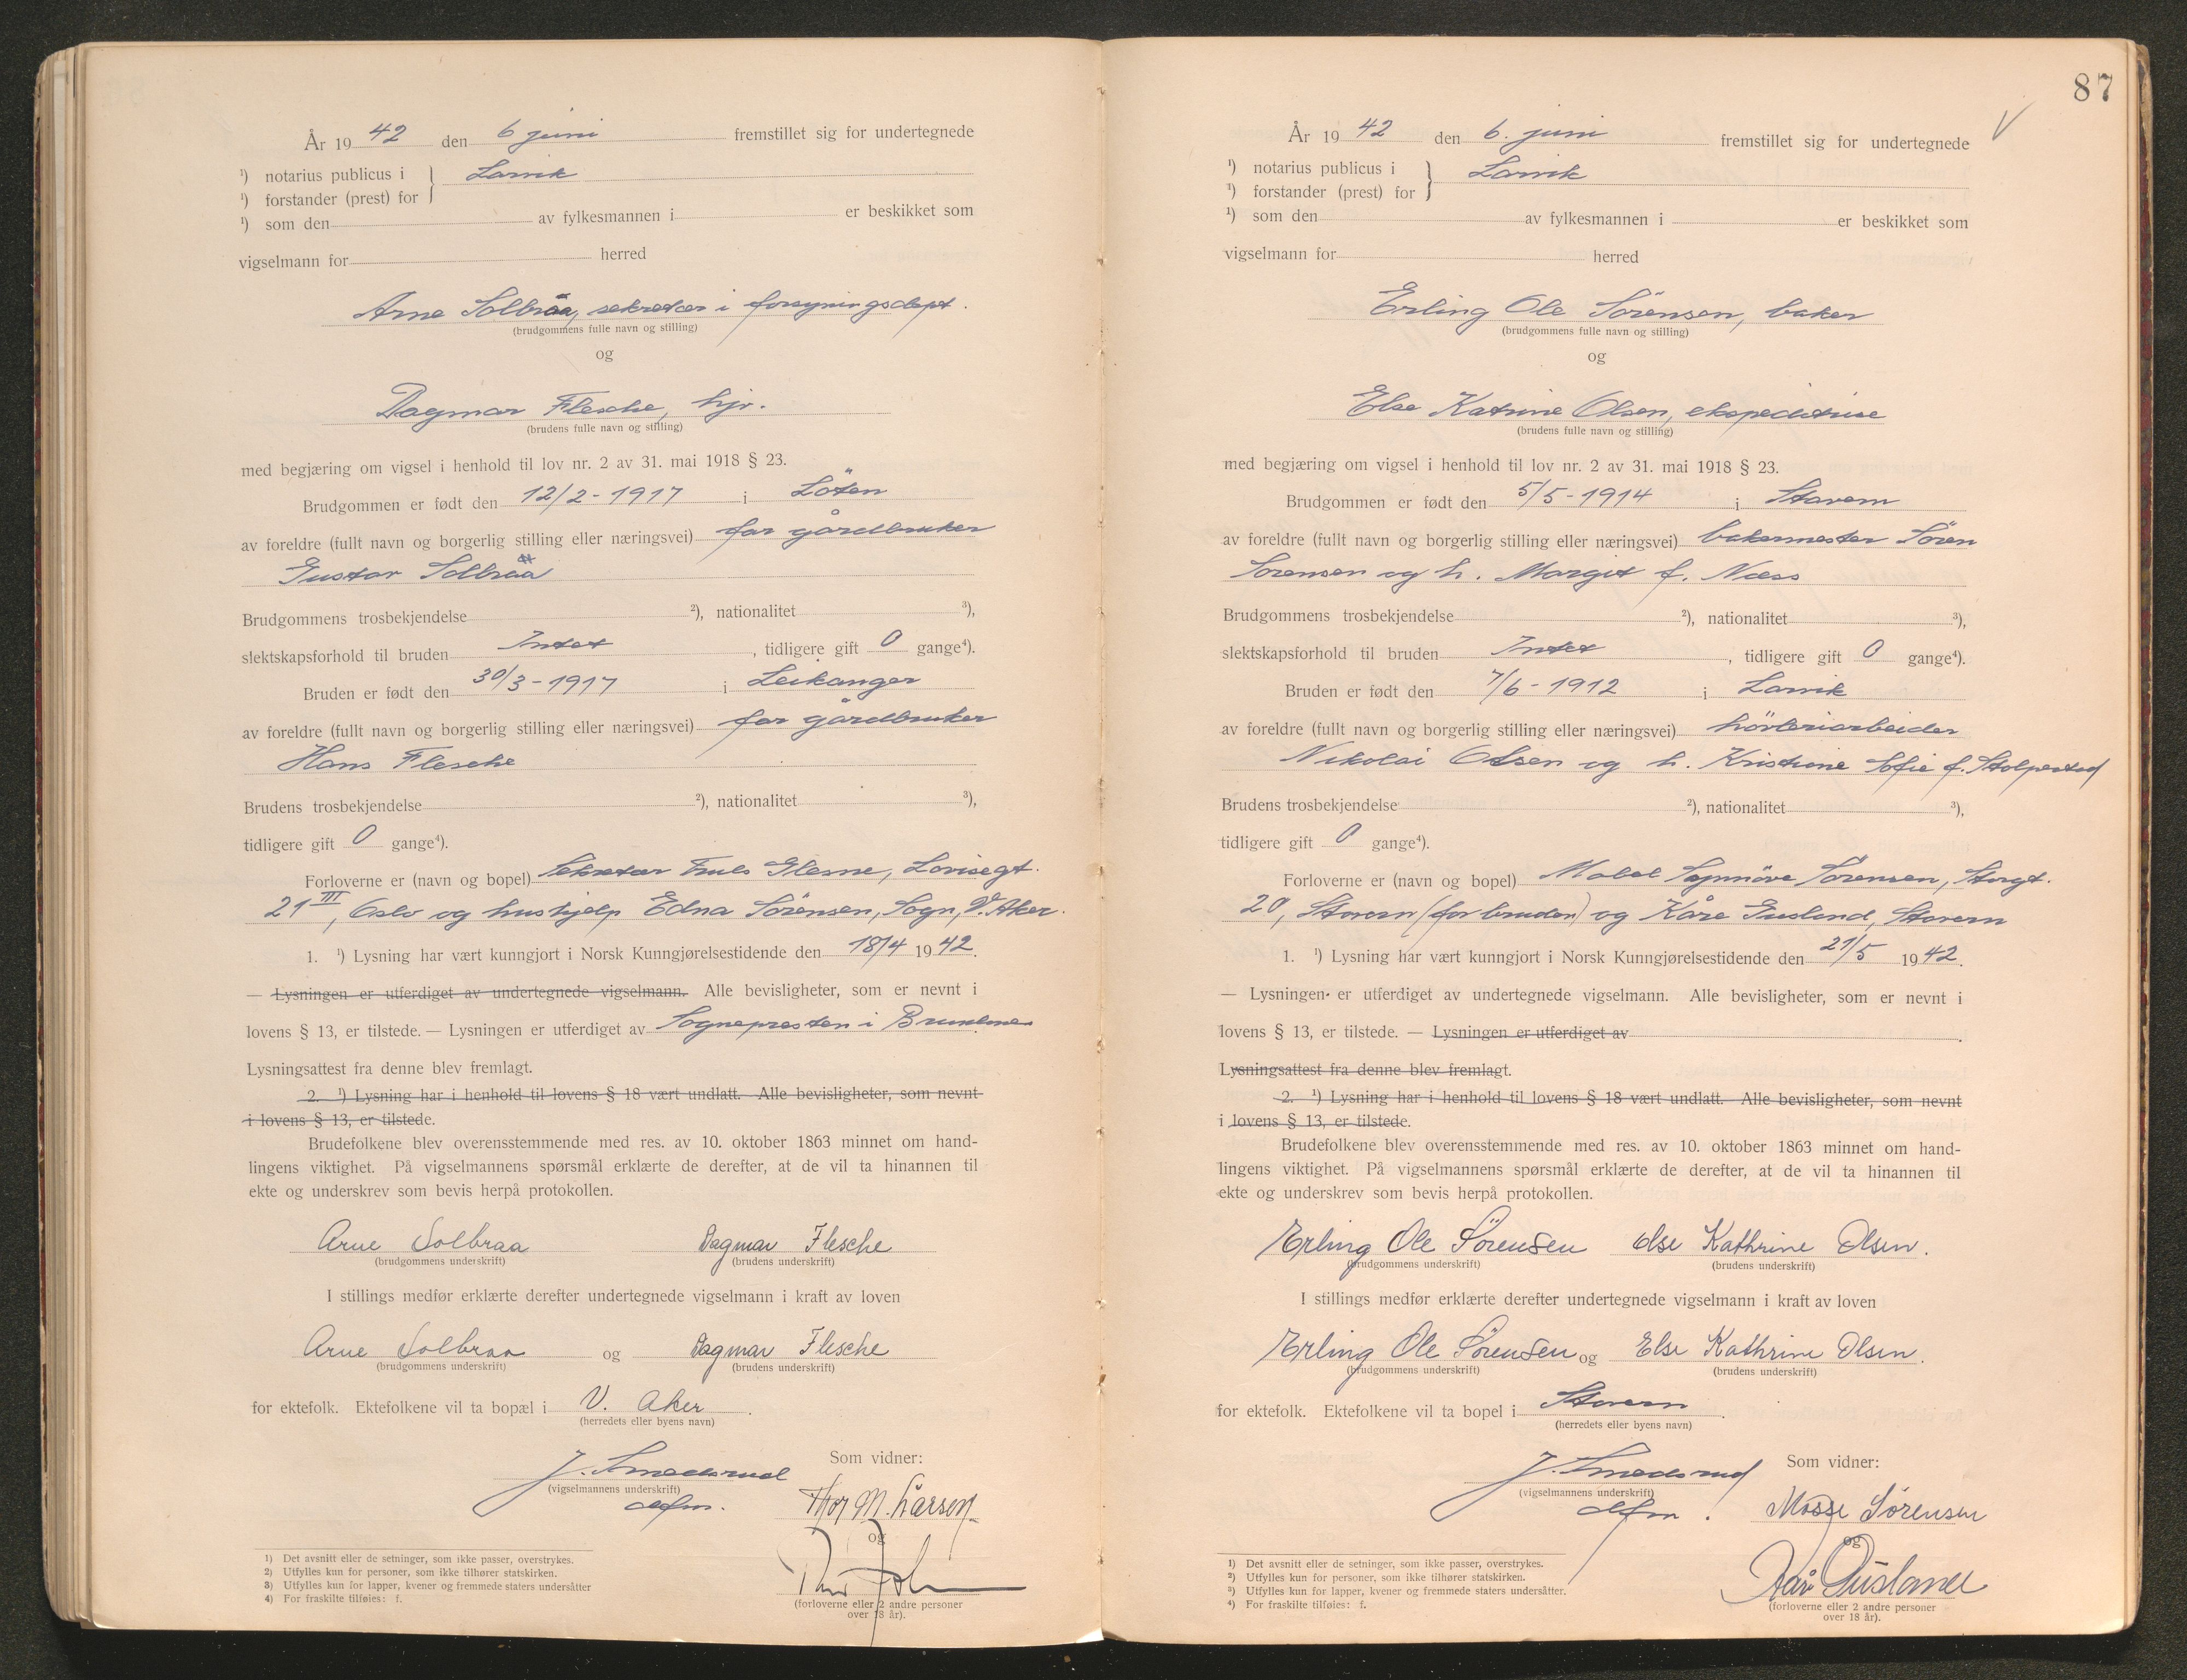 År 19 42 den 6 juni fremstillet sig for undertegnede
¹) notarius publicus i } Larvik
¹) forstander (prest) for
¹) som den av fylkesmannen i er beskikket som
vigselmann for herred
Arne Solbraa, sekretær i forsyningsdept.
(brudgommens fulle navn og stilling)
og
Dagmar Flesche, hjv.
(brudens fulle navn og stilling)
med begjæring om vigsel i henhold til lov nr. 2 av 31. mai 1918 § 23.
Brudgommen er født den 12/2-1917 i Löten
av foreldre (fullt navn og borgerlig stilling eller næringsvei) far gårdbruker
Gustav Solbraa
Brudgommens trosbekjendelse ²), nationalitet ³),
slektskapsforhold til bruden Intet, tidligere gift 0 gange⁴).
Bruden er født den 30/3-1917 i Leikanger
av foreldre (fullt navn og borgerlig stilling eller næringsvei) far gårdbruker
Hans Flesche
Brudens trosbekjendelse ²), nationalitet ³),
tidligere gift 0 gange⁴).
Forloverne er (navn og bopel) Sekretær Glesne, Lovisegt.
21 III, Oslo og hushjelp Edna Sörensen, Sogn, V. Aker.
1. ¹) Lysning har vært kunngjort i Norsk Kunngjørelsestidende den 18/4 19 42.
— Lysningen er utferdiget av undertegnede vigselmann. Alle bevisligheter, som er nevnt i
lovens § 13, er tilstede. — Lysningen er utferdiget av Sognepresten i
Lysningsattest fra denne blev fremlagt.
2. ¹) Lysning har i henhold til lovens § 18 vært undlatt. Alle bevisligheter, som nevnt
i lovens § 13, er tilstede.
Brudefolkene blev overensstemmende med res. av 10. oktober 1863 minnet om hand-
lingens viktighet. På vigselmannens spørsmål erklærte de derefter, at de vil ta hinannen til
ekte og underskrev som bevis herpå protokollen.
Arne Solbraa Dagmar Flesche
(brudgommens underskrift) (brudens underskrift)
I stillings medfør erklærte derefter undertegnede vigselmann i kraft av loven
Arne Solbraa og Dagmar Flesche
(brudgommens underskrift) (brudens underskrift)
for ektefolk. Ektefolkene vil ta bopæl i V. Aker.
(herredets eller byens navn)
J. Smedsrud Som vidner:
(vigselmannens underskrift)
dsfm. Thor M. Larsen
og
(forloverne eller 2 andre personer
over 18 år).
1) Det avsnitt eller de setninger, som ikke passer, overstrykes.
2) Utfylles kun for personer, som ikke tilhører statskirken.
3) Utfylles kun for lapper, kvener og fremmede staters undersåtter
4) For fraskilte tilføies: f.
87
År 19 42 den 6. juni fremstillet sig for undertegnede
¹) notarius publicus i } Larvik
¹) forstander (prest) for
¹) som den av fylkesmannen i er beskikket som
vigselmann for herred
Erling Ole Sörensen, baker
(brudgommens fulle navn og stilling)
og
Else Katrine Olsen, ekspeditrise
(brudens fulle navn og stilling)
med begjæring om vigsel i henhold til lov nr. 2 av 31. mai 1918 § 23.
Brudgommen er født den 5/5-1914 i Stavern
av foreldre (fullt navn og borgerlig stilling eller næringsvei) bakermester Sören
Sörensen og h. Margit f. Næss
Brudgommens trosbekjendelse ²), nationalitet ³),
slektskapsforhold til bruden Intet, tidligere gift 0 gange⁴).
Bruden er født den 7/6-1912 i Larvik
av foreldre (fullt navn og borgerlig stilling eller næringsvei) hövleriarbeider
Nikolai Olsen og h. Kristine Sofie f. Stolpestad
Brudens trosbekjendelse ²), nationalitet ³),
tidligere gift 0 gange⁴).
Forloverne er (navn og bopel) Mabel Synnöve Sörensen, Storgt.
20, Stavern (for bruden) og Kåre Gusland, Stavern
1. ¹) Lysning har vært kunngjort i Norsk Kunngjørelsestidende den 21/5 19 42.
— Lysningen er utferdiget av undertegnede vigselmann. Alle bevisligheter, som er nevnt i
lovens § 13, er tilstede. — Lysningen er utferdiget av
Lysningsattest fra denne blev fremlagt.
2. ¹) Lysning har i henhold til lovens § 18 vært undlatt. Alle bevisligheter, som nevnt
i lovens § 13, er tilstede.
Brudefolkene blev overensstemmende med res. av 10. oktober 1863 minnet om hand-
lingens viktighet. På vigselmannens spørsmål erklærte de derefter, at de vil ta hinannen til
ekte og underskrev som bevis herpå protokollen.
Erling Ole Sörensen Else Kathrine Olsen.
(brudgommens underskrift) (brudens underskrift)
I stillings medfør erklærte derefter undertegnede vigselmann i kraft av loven
Erling Ole Sörensen og Else Kathrine Olsen.
(brudgommens underskrift) (brudens underskrift)
for ektefolk. Ektefolkene vil ta bopel i Stavern.
(herredets eller byens navn)
J. Smedsrud Som vidner:
(vigselmannens underskrift)
dsfm. Mosse Sörensen
og
Kåre Gusland
(forloverne eller 2 andre personer
over 18 år).
¹) Det avsnitt eller de setninger, som ikke passer, overstrykes.
²) Utfylles kun for personer, som ikke tilhører statskirken.
³) Utfylles kun for lapper, kvener og fremmede staters undersåtter.
⁴) For fraskilte tilføies: f.